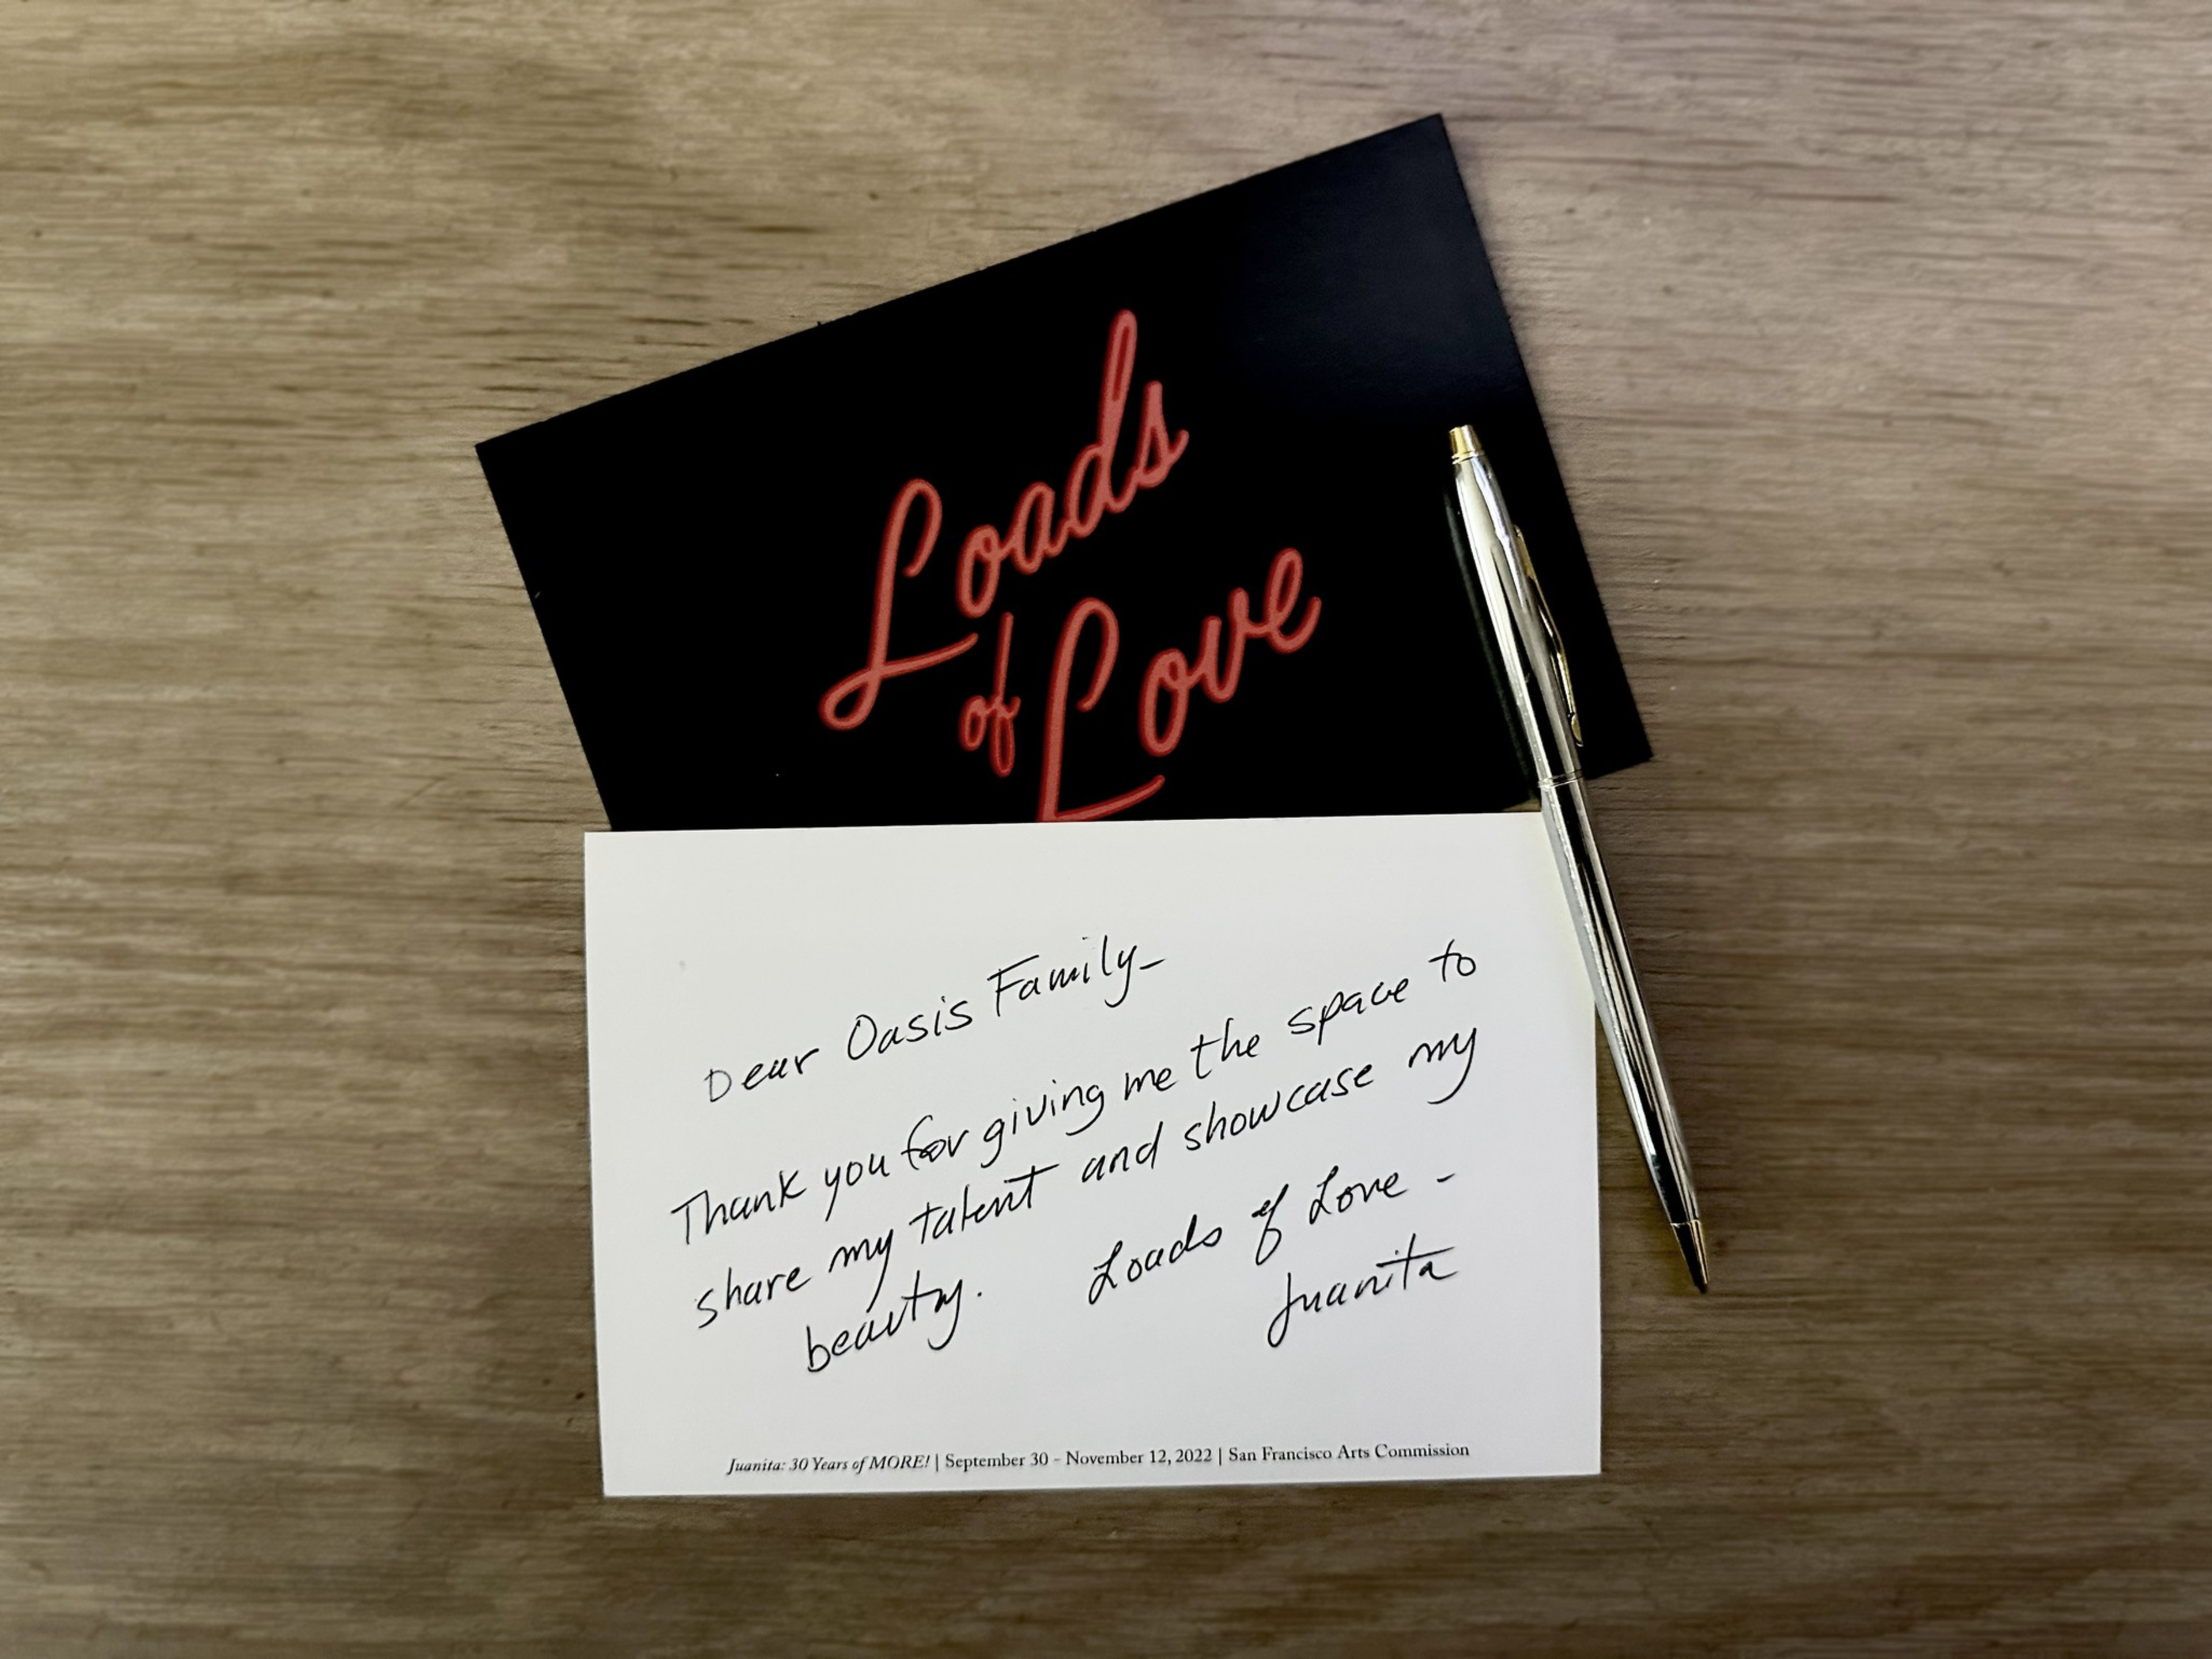 Loads
of Love
Dear Oasis Family-
Thank you for giving me the space to
share my talent and showcase my
beauty. Loads of Love -
Juanita
Juanita: 30 Years of MORE! | September 30 - November 12, 2022 | San Francisco Arts Commission